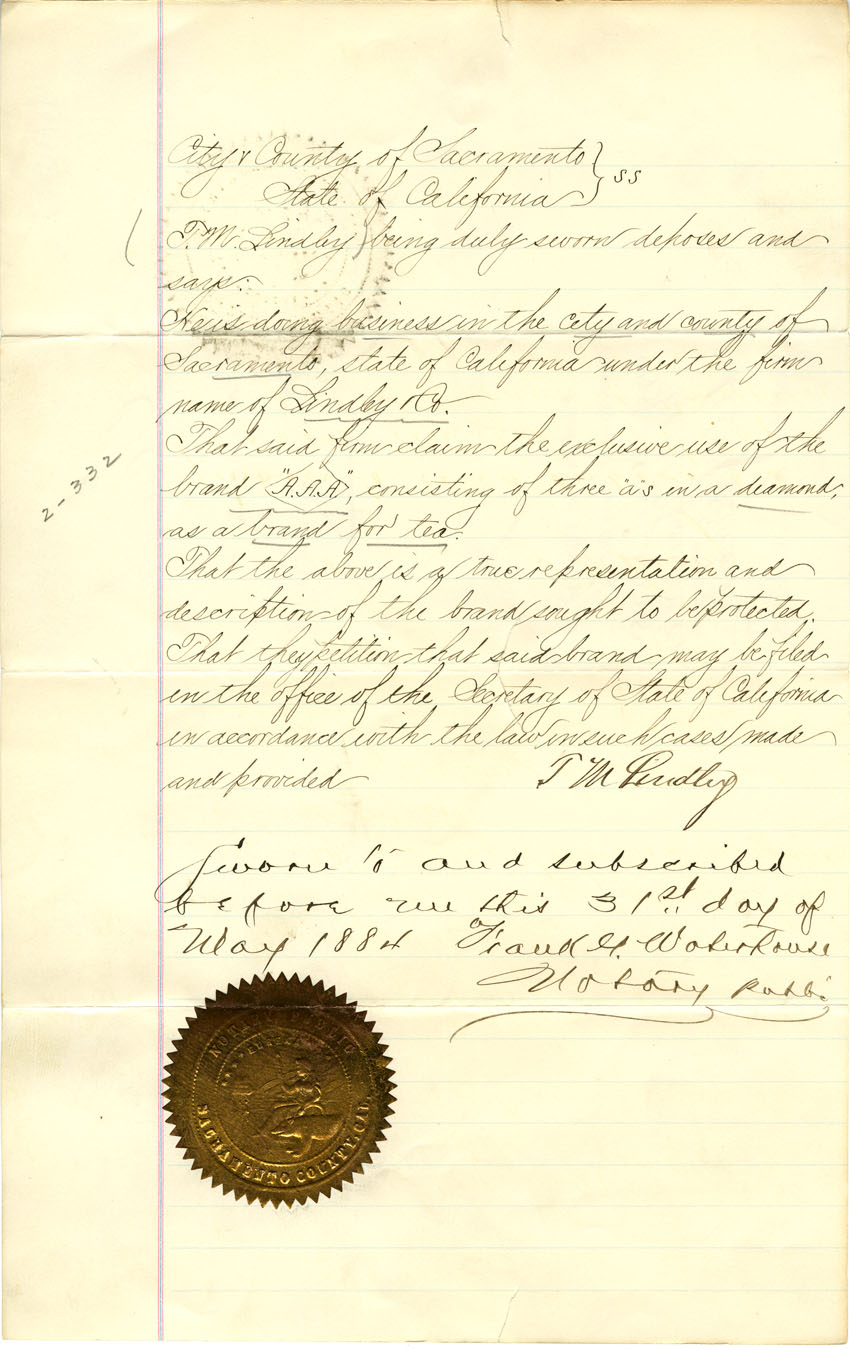 City & County of Sacramento } ss
State of California
T. M. Lindley being duly sworn deposes and
says:
He is doing business in the city and county of
Sacramento, state of California under the firm
name of Lindley & Co.
That said firm claim the exclusive use of the
brand "A.A.A", consisting of three "a"s in a deamond,
as a brand for tea.
That the above is a true representation and
description of the brand sought to be protected.
That they petition that said brand may be filed
in the office of the Secretary of State of California
in accordance with the law in such cases made
and provided
T M Lindley
2-332
Sworn to and subscribed
before me this 31st day of
May 1884 Frank G. Waterhouse
Notary Public
NOTARY PUBLIC
SACRAMENTO COUNTY, CAL.